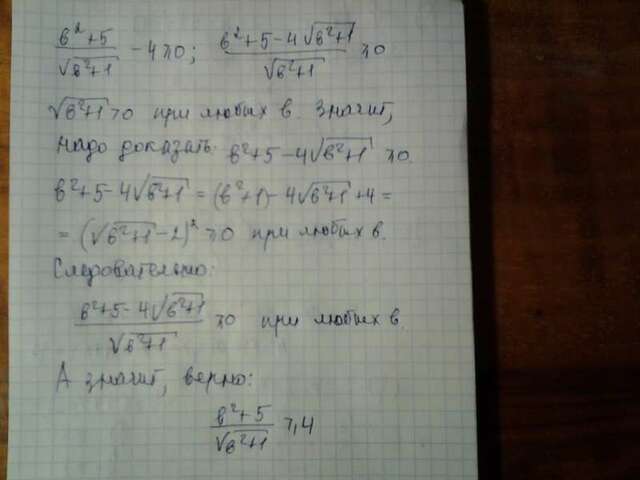 (в²+5)/√(в²+1) - 4 ≥ 0; (в²+5-4√(в²+1))/√(в²+1) ≥ 0
√(в²+1) > 0 при любых в. Значит,
надо доказать: в²+5-4√(в²+1) ≥ 0.
в²+5-4√(в²+1) = (в²+1)-4√(в²+1)+4 =
= (√(в²+1)-2)² ≥ 0 при любых в.
Следовательно:
(в²+5-4√(в²+1))/√(в²+1) ≥ 0 при любых в.
А значит, верно:
(в²+5)/√(в²+1) ≥ 4